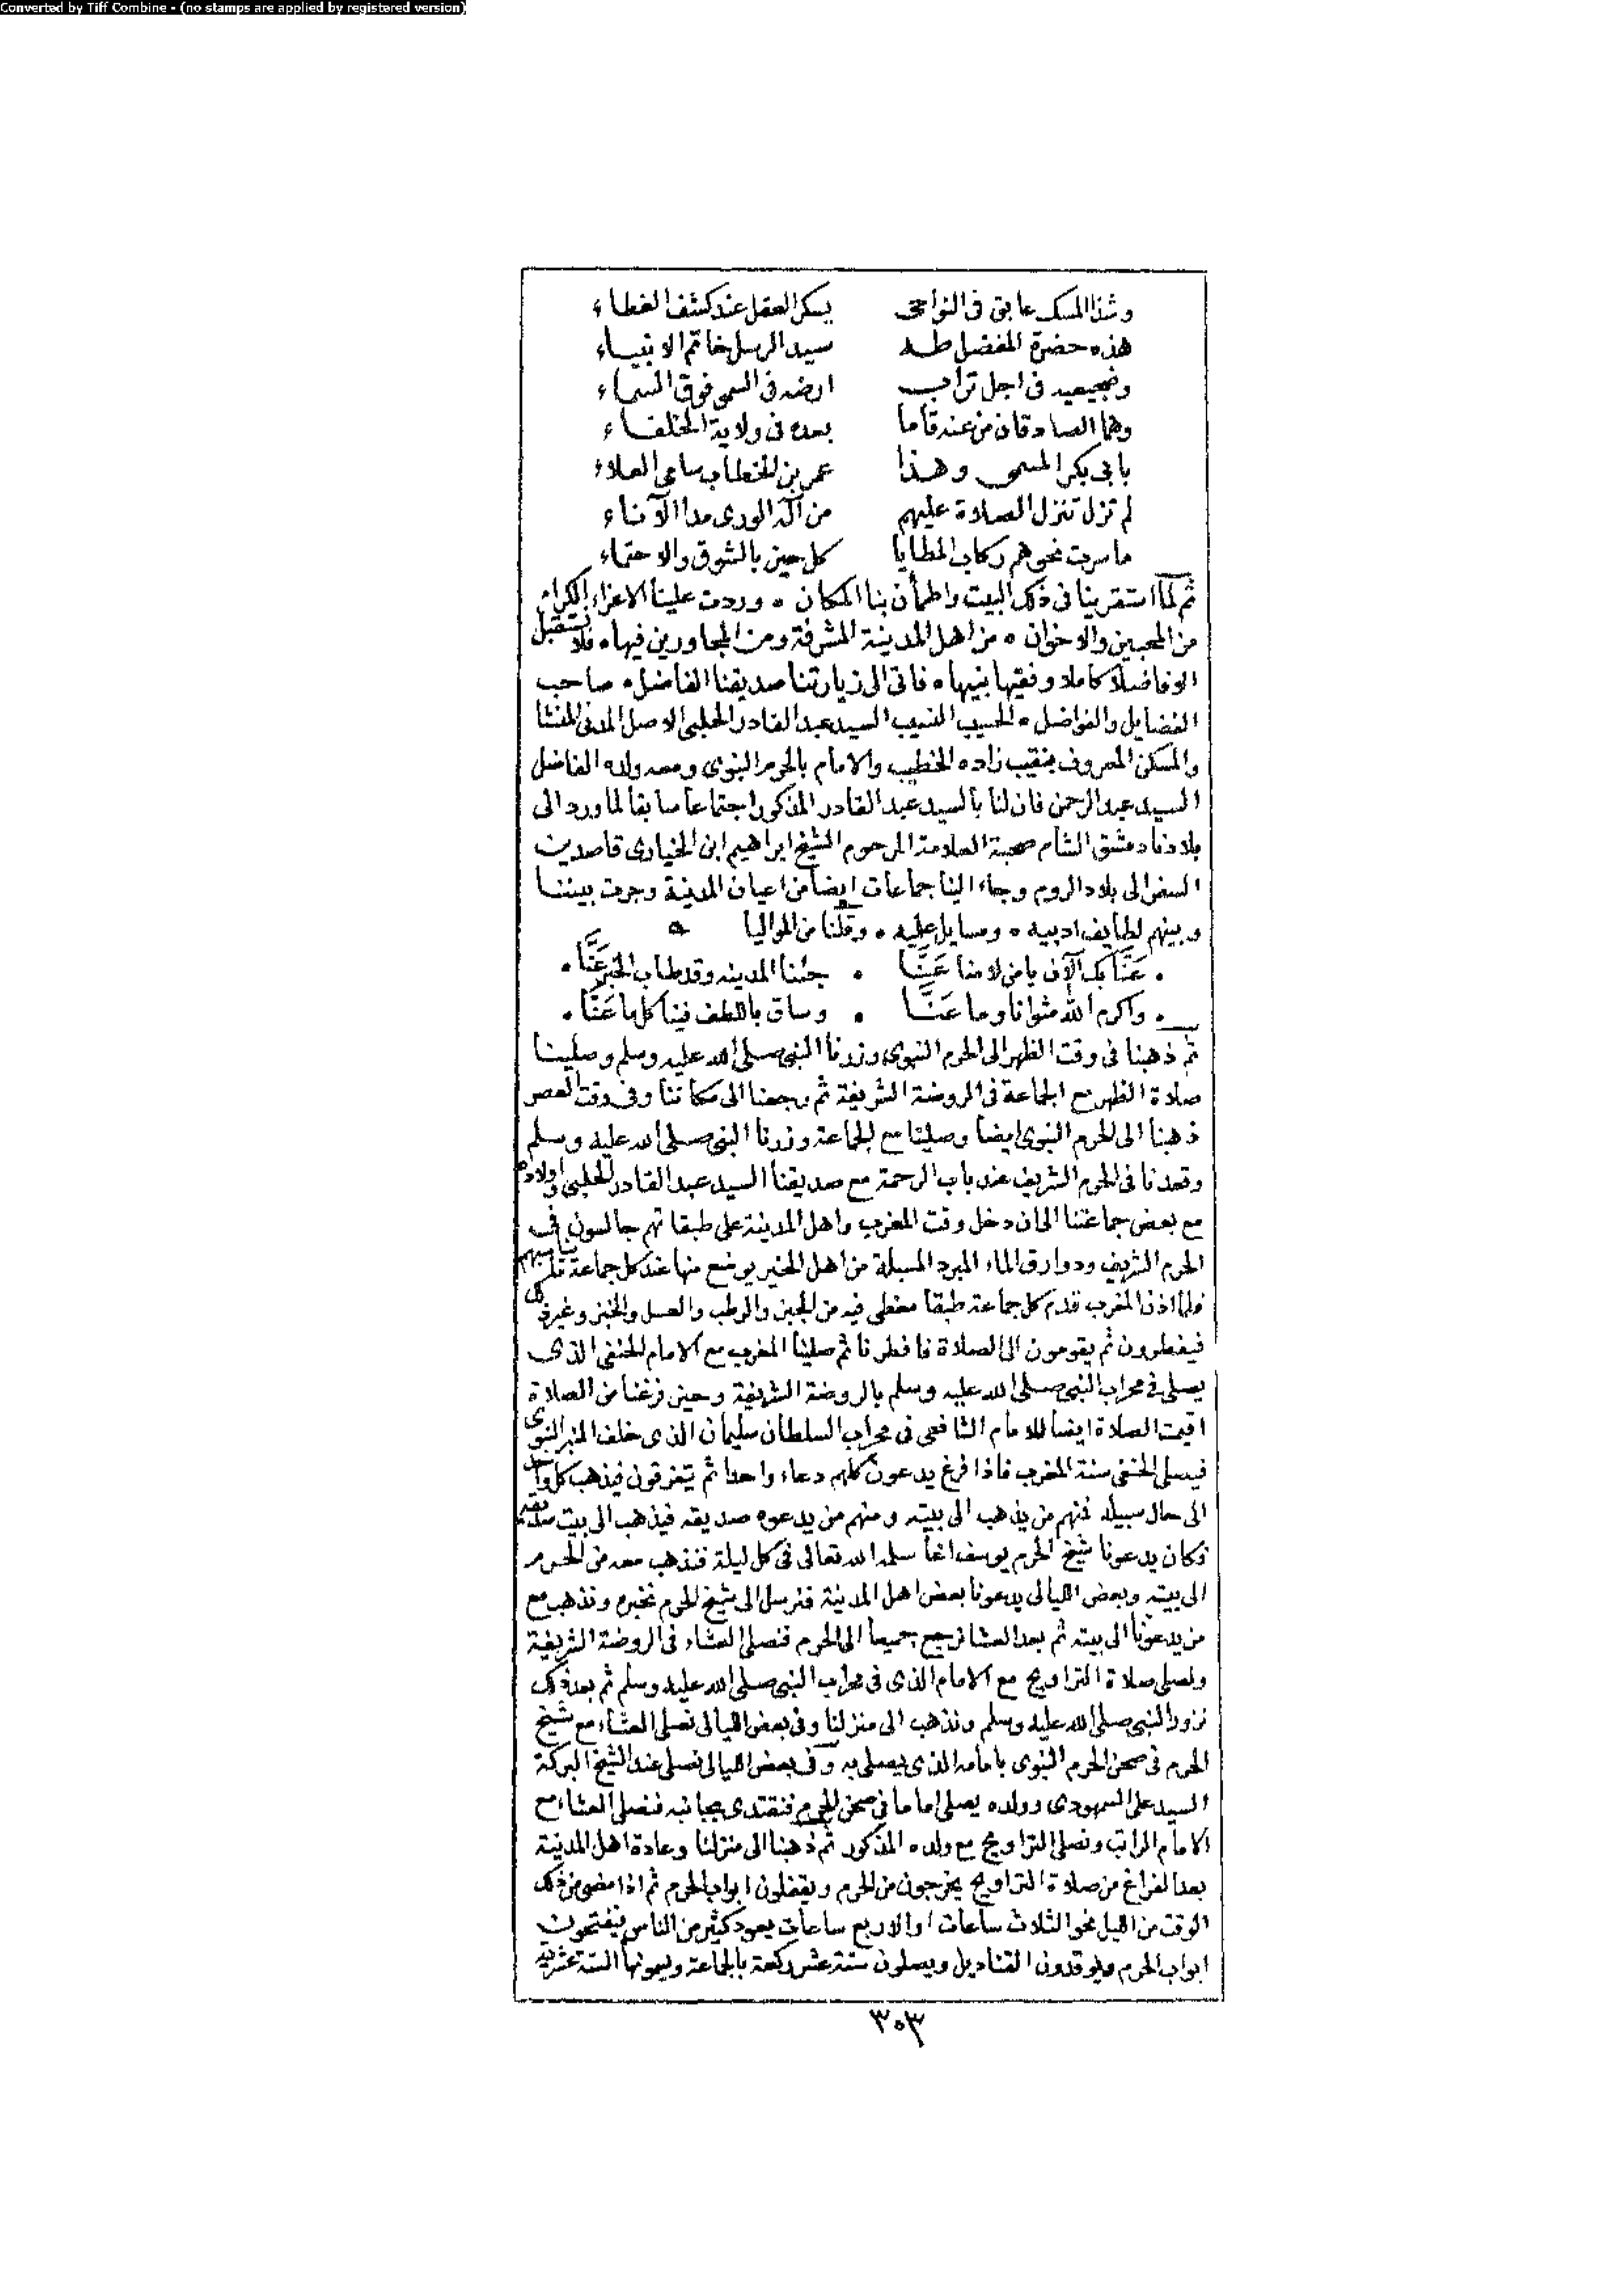 Converted by Tiff Combine - (no stamps are applied by registered version)
وشذا المسك عابق فى النواحى يسكر العقل عند كشف الغطاء
هذه حضرة المفضل طه سيد الرسل خاتم الانبياء
وضجيعيه فى اجل تراب ارضه فى السمى فوق السماء
وهما الصادقان من عند قاما بعده فى ولاية الخلفاء
بابى بكر المسمى وهذا عمر بن الخطاب سامى العلاء
لم تزل تنزل الصلاة عليهم من اله الورى مدا الآناء
ما سرت نحوهم ركاب المطايا كل حين بالشوق والاحتماء
ثم لما استقر بنا فى ذلك البيت واطمأن بنا المكان ٥ وردت علينا الاعزاء الكرام
من المحبين والاخوان ٥ من اهل المدينة المشرفة ومن المجاورين فيها ٥ فلا نستقبل
الا فاضلا كاملا وفقيها نبيها ٥ فاتى الى زيارتنا صديقنا الفاضل ٥ صاحب
الفضايل والفواضل ٥ الحسيب النسيب السيد عبد القادر الحلبى الاصل المدنى المنشا
والمسكن المعروف بنقيب زاده الخطيب والامام بالحرم النبوى ومعه ولده الفاضل
السيد عبد الرحمن فان لنا بالسيد عبد القادر المذكور اجتماعا سابقا لما ورد الى
بلادنا دمشق الشام صحبة العلامة المرحوم الشيخ ابراهيم ابن الخيارى قاصدين
السفر الى بلاد الروم وجاء الينا جماعات ايضا من اعيان المدينة وجرت بيننا
وبينهم لطايف ادبيه ٥ ومسايل علميه ٥ وقلنا من المواليا ٥
٠ عَنَّا بك الآن يا من لامنا عَنَّا ٠ جئنا المدينه وقد طاب الخبر عَنَّا ٠
٠ واكرم الله مثوانا وما عَنَّا ٠ وساق باللطف فينا كل ما عَنَّا ٠
ثم ذهبنا فى وقت الظهر الى الحرم النبوى وزرنا النبى صلى الله عليه وسلم وصلينا
صلاة الظهر مع الجماعة فى الروضة الشريفة ثم رجعنا الى مكاننا وفى وقت العصر
ذهبنا الى الحرم النبوى ايضا وصلينا مع الجماعة وزرنا النبى صلى الله عليه وسلم
وقعدنا فى الحرم الشريف عند باب الرحمة مع صديقنا السيد عبد القادر الحلبى واولاده
مع بعض جماعتنا الى ان دخل وقت المغرب واهل المدينة على طبقاتهم جالسون فى
الحرم الشريف ودوارق الماء المبرد المسبلة من اهل الخير يوضع منها عند كل جماعة تناسبهم
فلما اذن المغرب قدم كل جماعة طبقا مغطى فيه من الجبن والرطب والعسل والخبز وغير ذلك
فيفطرون ثم يقومون الى الصلاة فافطرنا ثم صلينا المغرب مع الامام الحنفى الذى
يصلى فى محراب النبى صلى الله عليه وسلم بالروضة الشريفة وحين فرغنا من الصلاة
اقيمت الصلاة ايضا للامام الشافعى فى محراب السلطان سليمان الذى خلف المنبر النبوى
فيصلى الحنفى سنة المغرب فاذا فرغ يدعون كلهم دعاء واحدا ثم يتفرقون فيذهب كل واحد
الى حال سبيله فمنهم من يذهب الى بيته ومنهم من يدعوه صديقه فيذهب الى بيت صديقه
وكان يدعونا شيخ الحرم يوسف اغا سلمه الله تعالى فى كل ليلة فنذهب معه من الحرم
الى بيته وبعض الليالى يدعونا بعض اهل المدينة فنرسل الى شيخ الحرم نخبره ونذهب مع
من يدعونا الى بيته ثم بعد العشا نرجع جميعا الى الحرم فنصلى العشاء فى الروضة الشريفة
ونصلى صلاة التراويح مع الامام الذى فى محراب النبى صلى الله عليه وسلم ثم بعد ذلك
نزور النبى صلى الله عليه وسلم ونذهب الى منزلنا وفى بعض الليالى نصلى العشاء مع شيخ
الحرم فى صحن الحرم النبوى بامامه الذى يصلى به وفى بعض الليالى نصلى عند الشيخ البركة
السيد على السمهودى وولده يصلى اماما فى صحن الحرم فنقتدى بجانبه فنصلى العشاء مع
الامام الراتب ونصلى التراويح مع ولده المذكور ثم ذهبنا الى منزلنا وعادة اهل المدينة
بعد الفراغ من صلاة التراويح يخرجون من الحرم ويقفلون ابواب الحرم ثم اذا مضى من ذلك
الوقت من الليل نحو الثلاث ساعات او الاربع ساعات يعود كثير من الناس فيفتحون
ابواب الحرم ويوقدون القناديل ويصلون ستة عشر ركعة بالجماعة ويسمونها الستة عشرية
٣٠٣